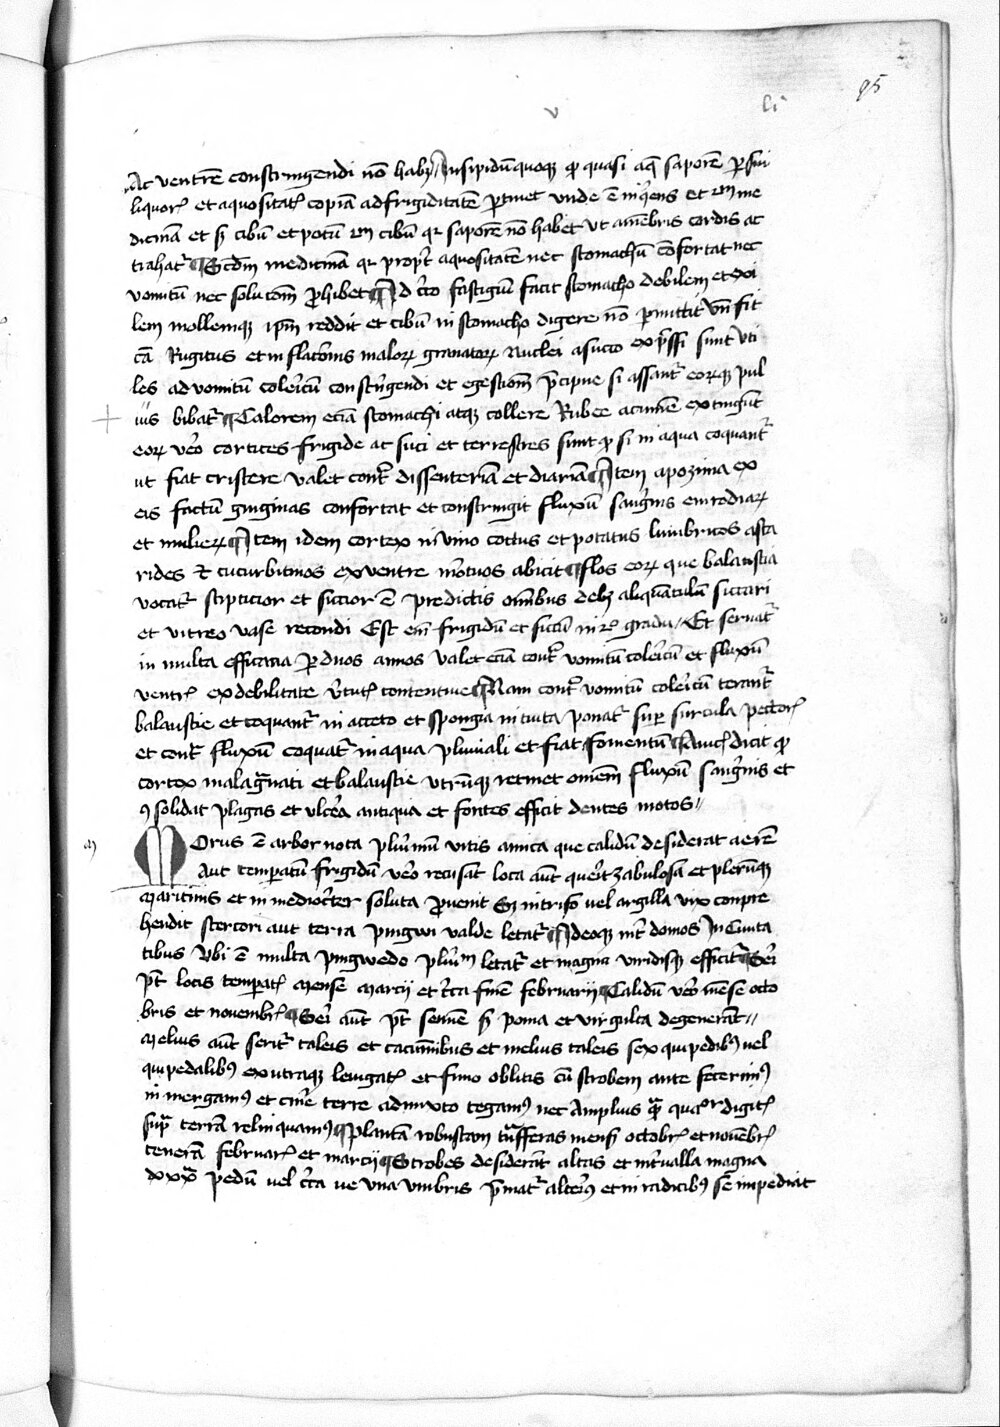 v
li
95
Ac ventrē constringendi nō habꝫ Insipidū quoqꝫ ꝙ quasi aq̄ saporē ꝑ sui
liquorꝭ et aquositatꝭ copiā ad frigiditatē ꝑtinet unde ē in gͤens et in me
dicinā et ẜ cibū et potū in cibū qꝛ saporē nō habet ut a mēbris cordis at
trahatᷣ ¶ Scdm medicinā qꝛ proptᷣ aquositatē nec stomachū cōfortat nec
vomitū nec solucōm ꝓhibet ¶ Id cͥco fastigiū facit stomacho debilem et exi
lem mollemqꝫ ip̄m reddit et cibū in stomacho digere nō ꝑmittit Vn̄ fit
cā Rugitus et inflacōnis maloꝝ granatoꝝ Nuclei a succo exp̄ssi sunt uti
les ad vomitū coleͥcū constͥngendi et egestiom̄ p̄cipue si assantᷣ eoꝝqꝫ pul
uis bibatᷣ ¶ Calorem eciā stomachi atqꝫ collere Rubee acumē extingūt
eoꝝ vͦo cortices frigide ac sicci et terrestres sunt ꝙ si in aqua coquantᷣ
ut fiat cristere valet contͣ dissenteriā et diariā ¶ Item apozima ex
eis factū ginginas confortat et constringit fluxū sangͥnis emrodiaꝝ
et mulieꝝ ¶ Item idem cortex in vino coctus et potatus lumbricos asca
rides et cucurbitinos ex ventre mͦtuos abicit ¶ flos eoꝝ que balaustia
vocatᷣ stipticior et siccior ē predictis omībus debꝫ aliquātulū siccari
et vitreo vase recondi Est em̄ frigidū et siccū in 2ͦ gradu / Et seruatᷣ
in multa efficacia ꝑ duos annos valet eciā contͣ vomitū coleͥcū et fluxū
ventrꝭ ex debilitate vͥtutꝭ contentiue ¶ Nam contͣ vomitū coleͥcū terantᷣ
balaustie et coquantᷣ in acceto et spongia intincta ponatᷣ suꝑ furcula pectorꝭ
et contͣ fluxū coquatᷣ in aqua pluuiali et fiat fomentū ¶ Auicꝭ dicit ꝙ
cortex malagͣnati et balaustie utrūqꝫ retinet omēm fluxū sangͥnis et
ꝯsolidat plagas et ulcͤa antiqua et fortes efficit dentes motos //
MOrus ē arbor nota plͥmū vitis amica que calidū desiderat aerē
Aut temꝑatū frigidū vͦo recusat loca aūt querͥt zabulosa et plerūqꝫ
Maritimis et in mediocͥter soluta ꝓuenit Sꝫ in trifo vel argilla vix conpre
hendit stercori aut terra pingwi valde letatᷣ ¶ Ideoqꝫ intͣ domos In Ciuita
tibus Vbi ē multa pingwedo plͥm letatᷣ et magna viridisqꝫ efficitᷣ ¶ Serͥ
pt̄ locis temꝑatꝭ Mense Marcii et cͥca finē februarii ¶ Calidū vͦo mēse octo
bris et nouembrꝭ ¶ Serͥ aūt pt̄ semīe ẜ poma et virgulta degenerāt //
Melius aūt seritᷣ taleis et cacumībus et melius taleis sexquipedibꝰ vel
quipedalibꝰ ex utraqꝫ leuigatꝭ et fimo oblitis cū strobem ante fecerimꝰ
in mergamꝰ et cinͤe terre admixto tegamꝰ nec Amplius qͣ quatͦr digitꝭ
supͣ terrā relinquamꝰ ¶ plantā robustam tͣnsferas mensꝭ octobrꝭ et nouēbrꝭ
tenerā februarꝭ et marcii ¶ Strobes desiderāt altas et intͥualla magna
xxxͣ pedū vel cͥca ne vna vmbris p̄matᷣ alterͥꝰ et in radicibꝰ sē impediāt